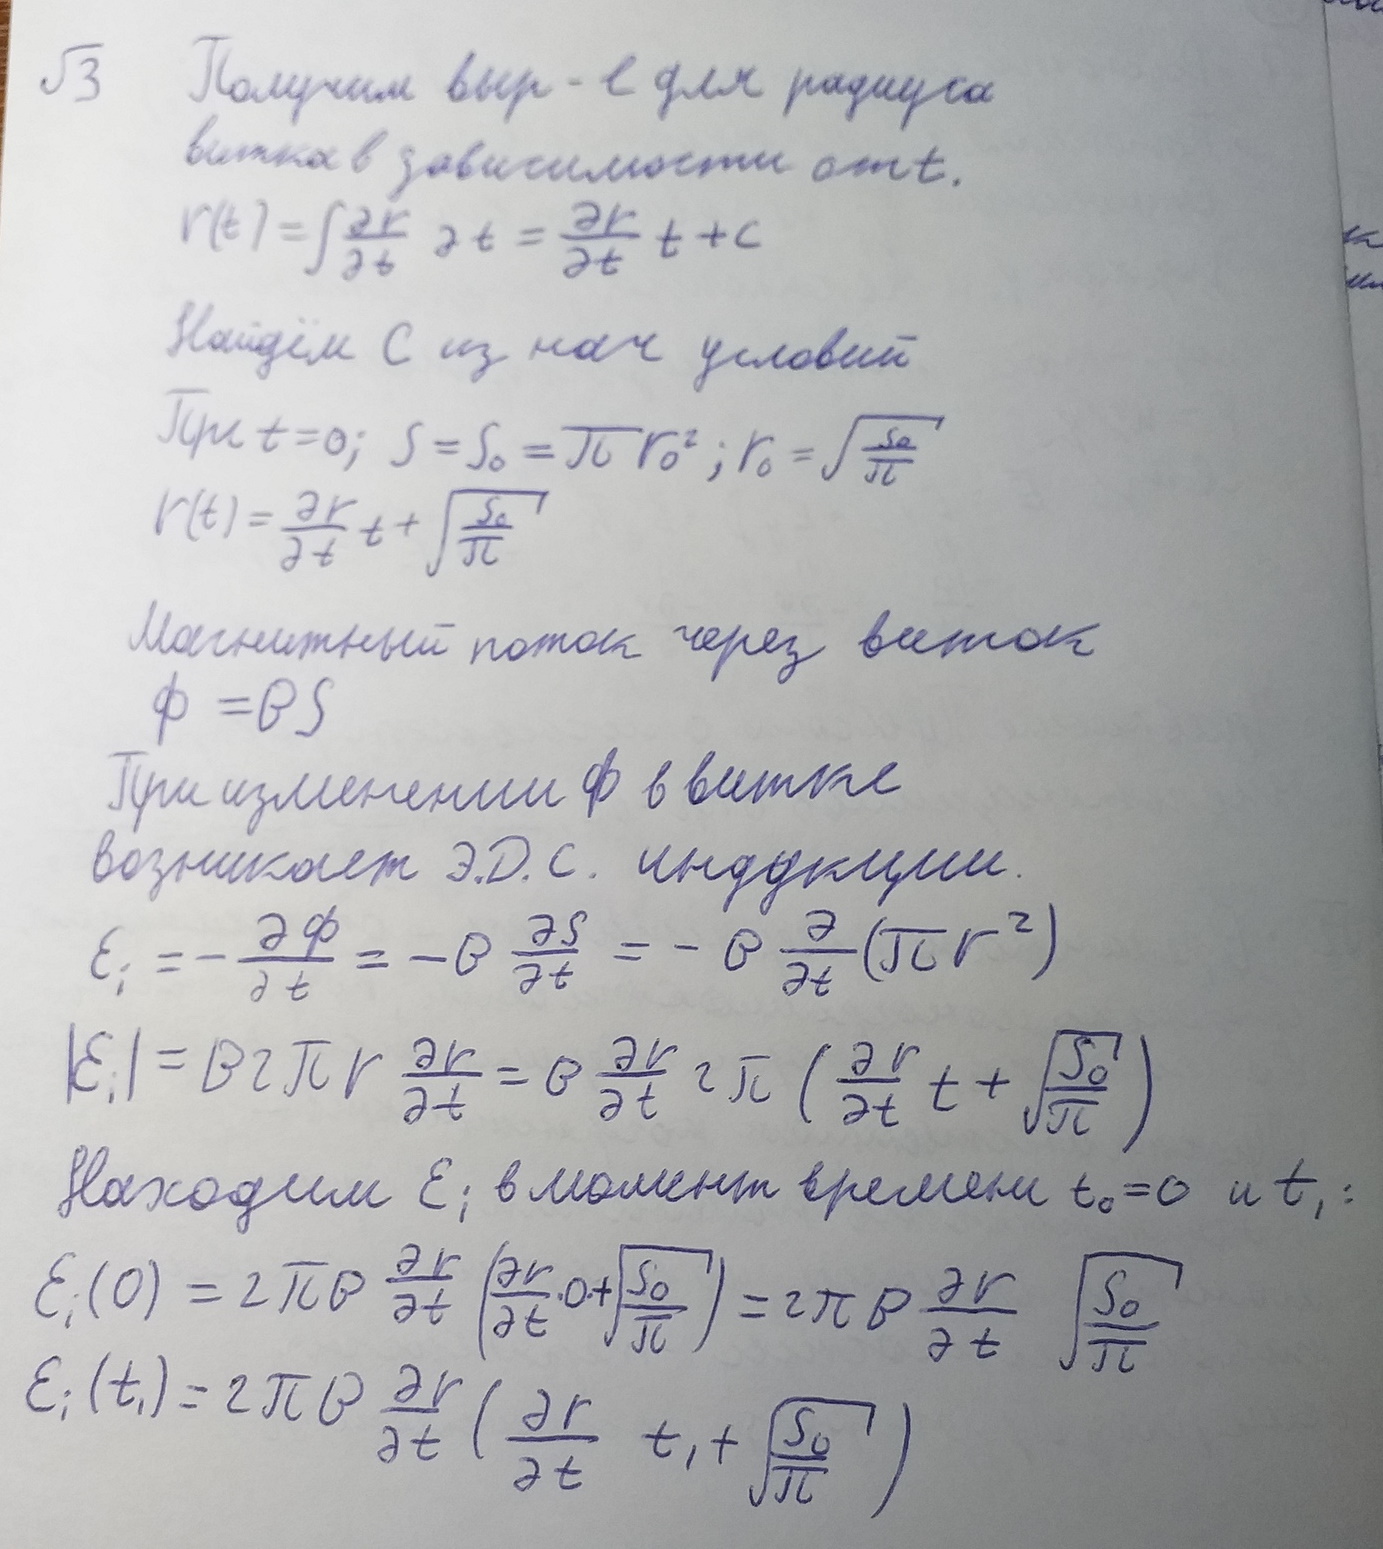 √3 Получим выр-е для радиуса
витка в зависимости от t.
r(t) = ∫ ∂r/∂t ∂t = ∂r/∂t t + c
Найдём C из нач условий
При t=0; S = S₀ = πr₀²; r₀ = √(S₀/π)
r(t) = ∂r/∂t t + √(S₀/π)
Магнитный поток через виток
Ф = BS
При изменении Ф в витке
возникает Э.Д.С. индукции.
Ɛᵢ = -∂Ф/∂t = -B ∂S/∂t = -B ∂/∂t (πr²)
|Ɛᵢ| = B2πr ∂r/∂t = B ∂r/∂t 2π (∂r/∂t t + √(S₀/π))
Находим Ɛᵢ в момент времени t₀=0 и t₁:
Ɛᵢ(0) = 2πB ∂r/∂t (∂r/∂t·0+√(S₀/π)) = 2πB ∂r/∂t √(S₀/π)
Ɛᵢ(t₁) = 2πB ∂r/∂t (∂r/∂t t₁ + √(S₀/π))